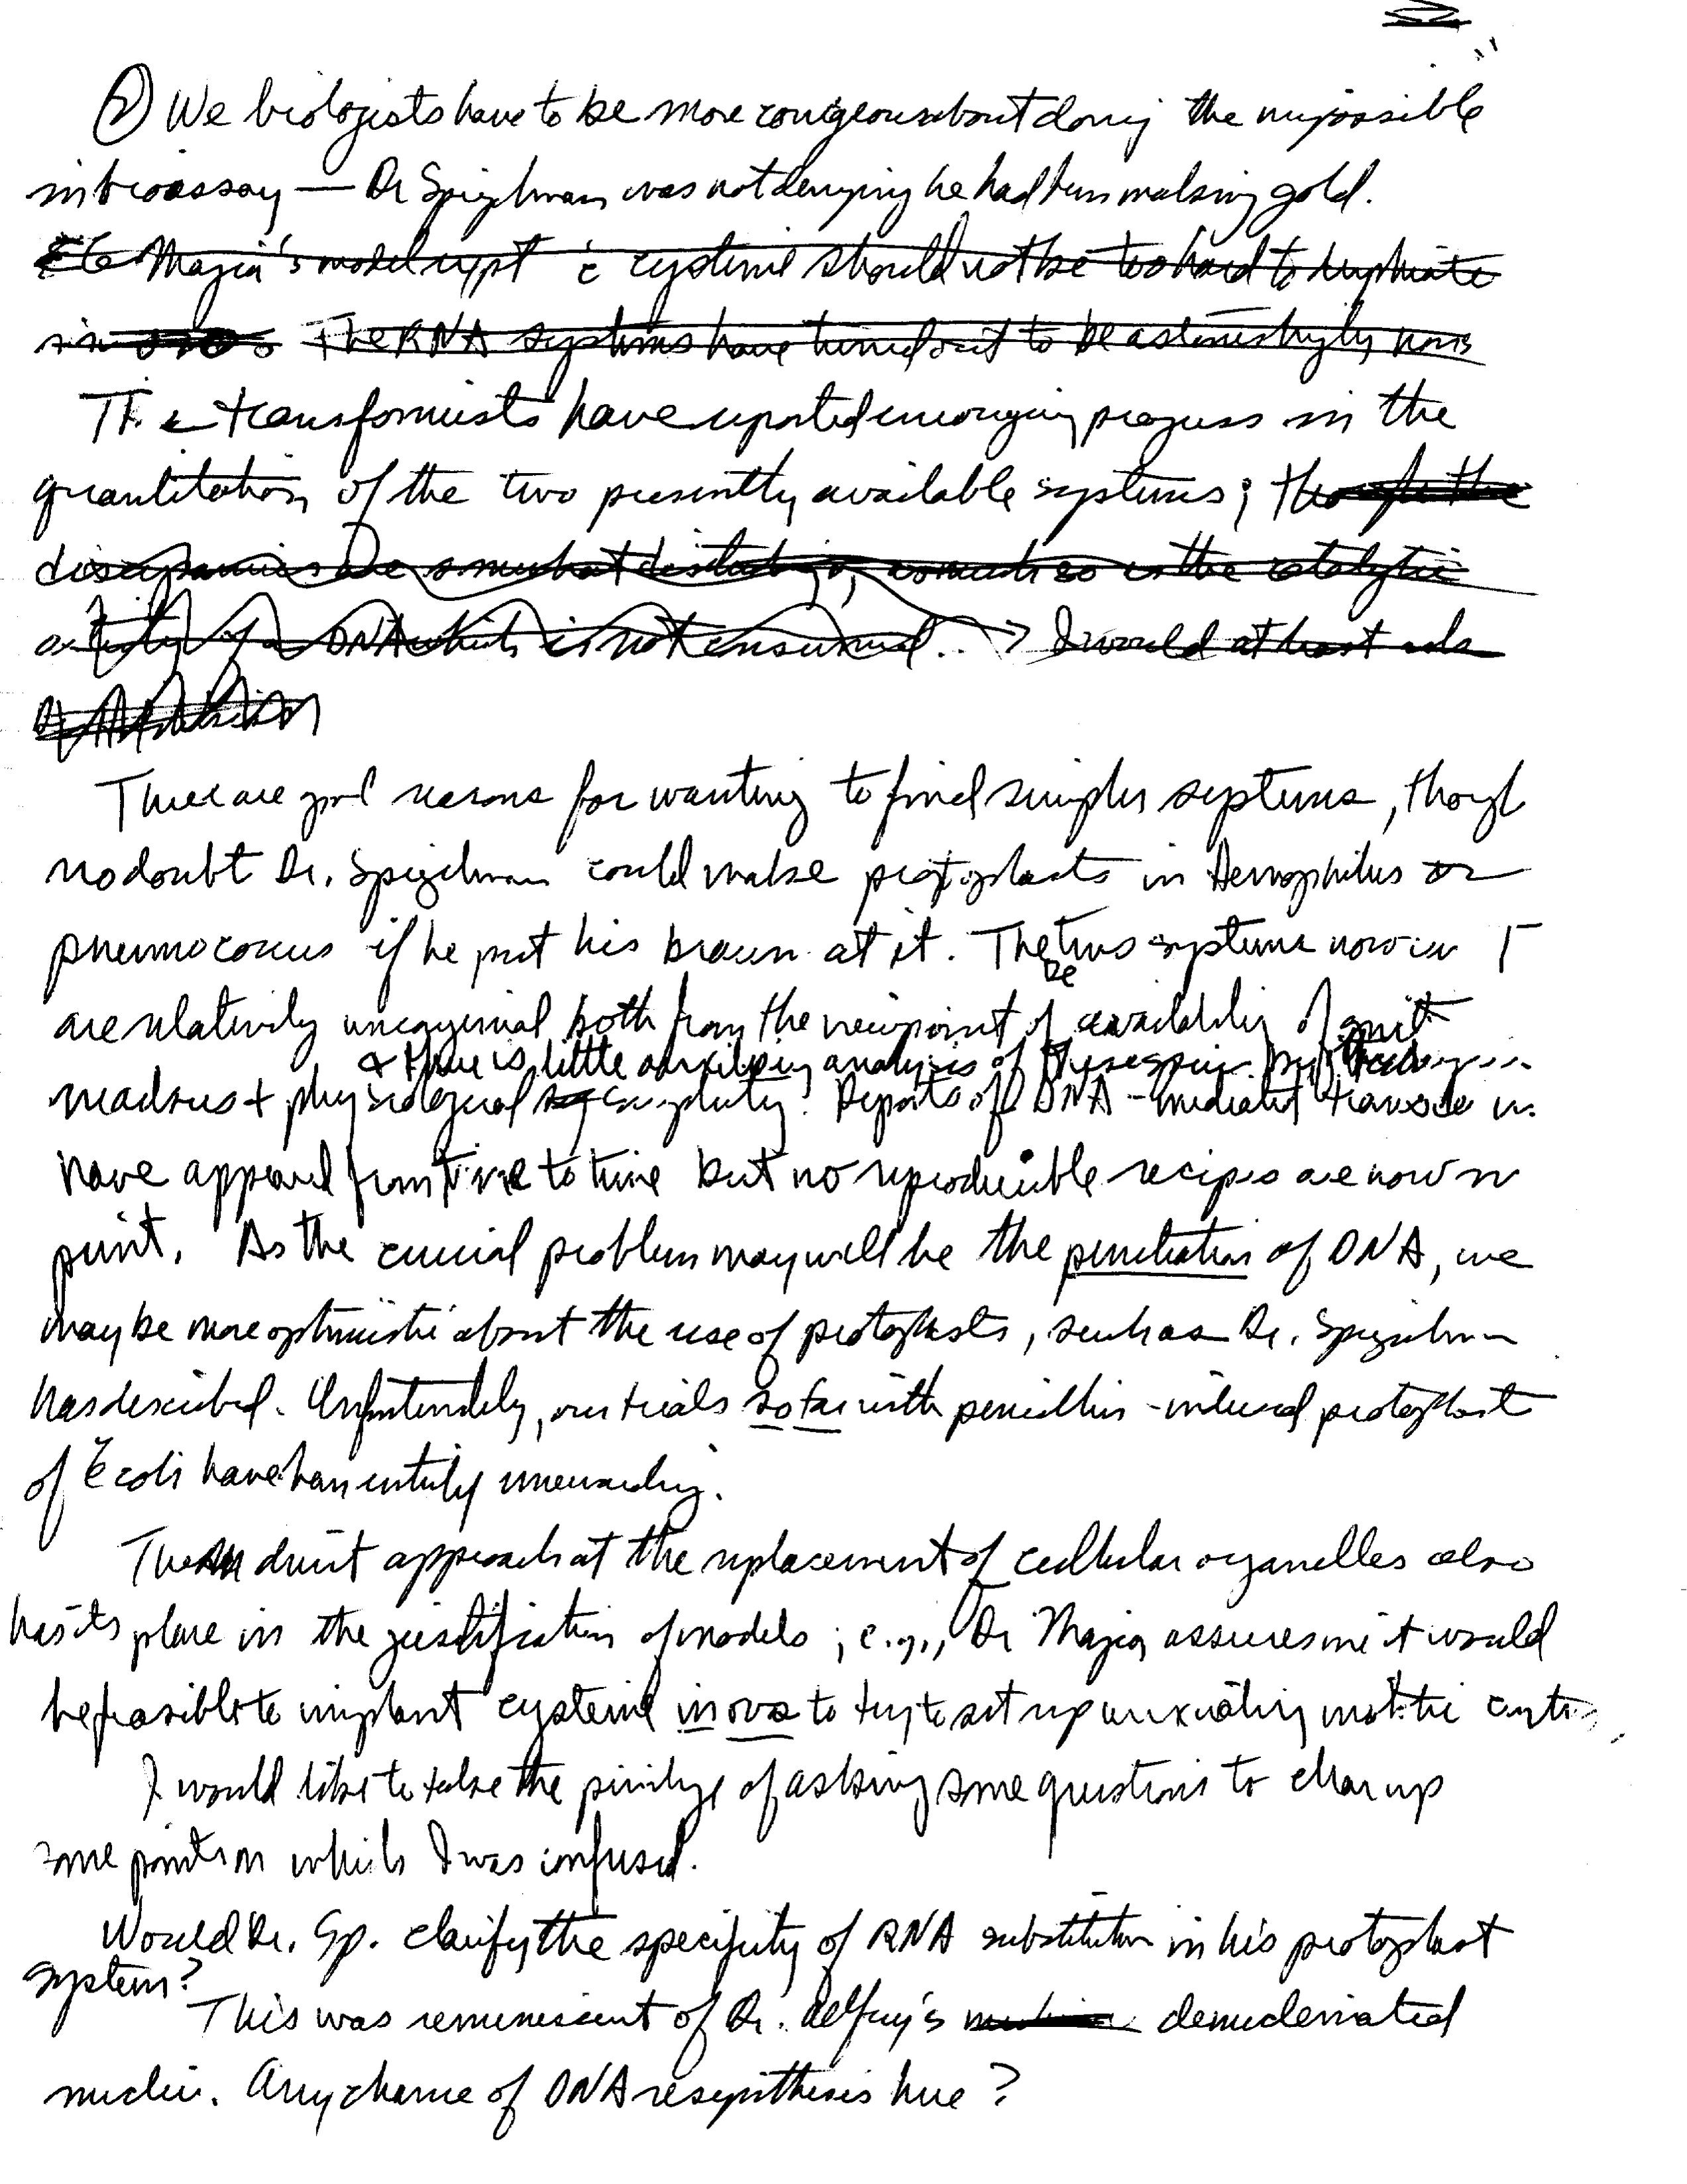 ② We biologists have to be more courgeous about doing the impossible
in bioassay — Dr Spiegelman was not denying he had been making gold.
Mazia's model expt c̄ cysteine should not be too hard to duplicate
in ovo. The RNA systems have turned out to be astonishingly non
The transformists have reported encouraging progress in the
quantitation of the two presently available systems; though the
discrepancies are somewhat disturbing, as much so as the catalytic
activity of a DNA which is not consumed.. → I would at least ask
There are good reasons for wanting to find simpler systems, though
no doubt Dr. Spiegelman could make protoplasts in Hemophilus or
pneumococcus if he put his brawn at it. The two systems now in
are relatively uncongenial both from the viewpoint of availability of genetic
& there is little auxiliary analysis of these
markers + physiological complexity. Reports of DNA-mediated transdn in
have appeared from time to time but no reproducible recipes are now in
print. As the crucial problem may well be the penetration of DNA, we
may be more optimistic about the use of protoplasts, such as Dr. Spiegelman
has described. Unfortunately, our trials so far with penicillin-induced protoplasts
of E coli have been entirely unrewarding.
The direct approach at the replacement of cellular organelles also
has its place in the justification of models; e.g., Dr Mazia assures me it would
be feasible to implant cysteine in ova to try to set up mitotic
I would like to take the privilege of asking some questions to clear up
some points on which I was confused.
Would Dr. Sp. clarify the specificity of RNA substitution in his protoplast
system?
This was reminiscent of Dr. Allfrey's denucleinated
nuclei. Any chance of DNA resynthesis here?